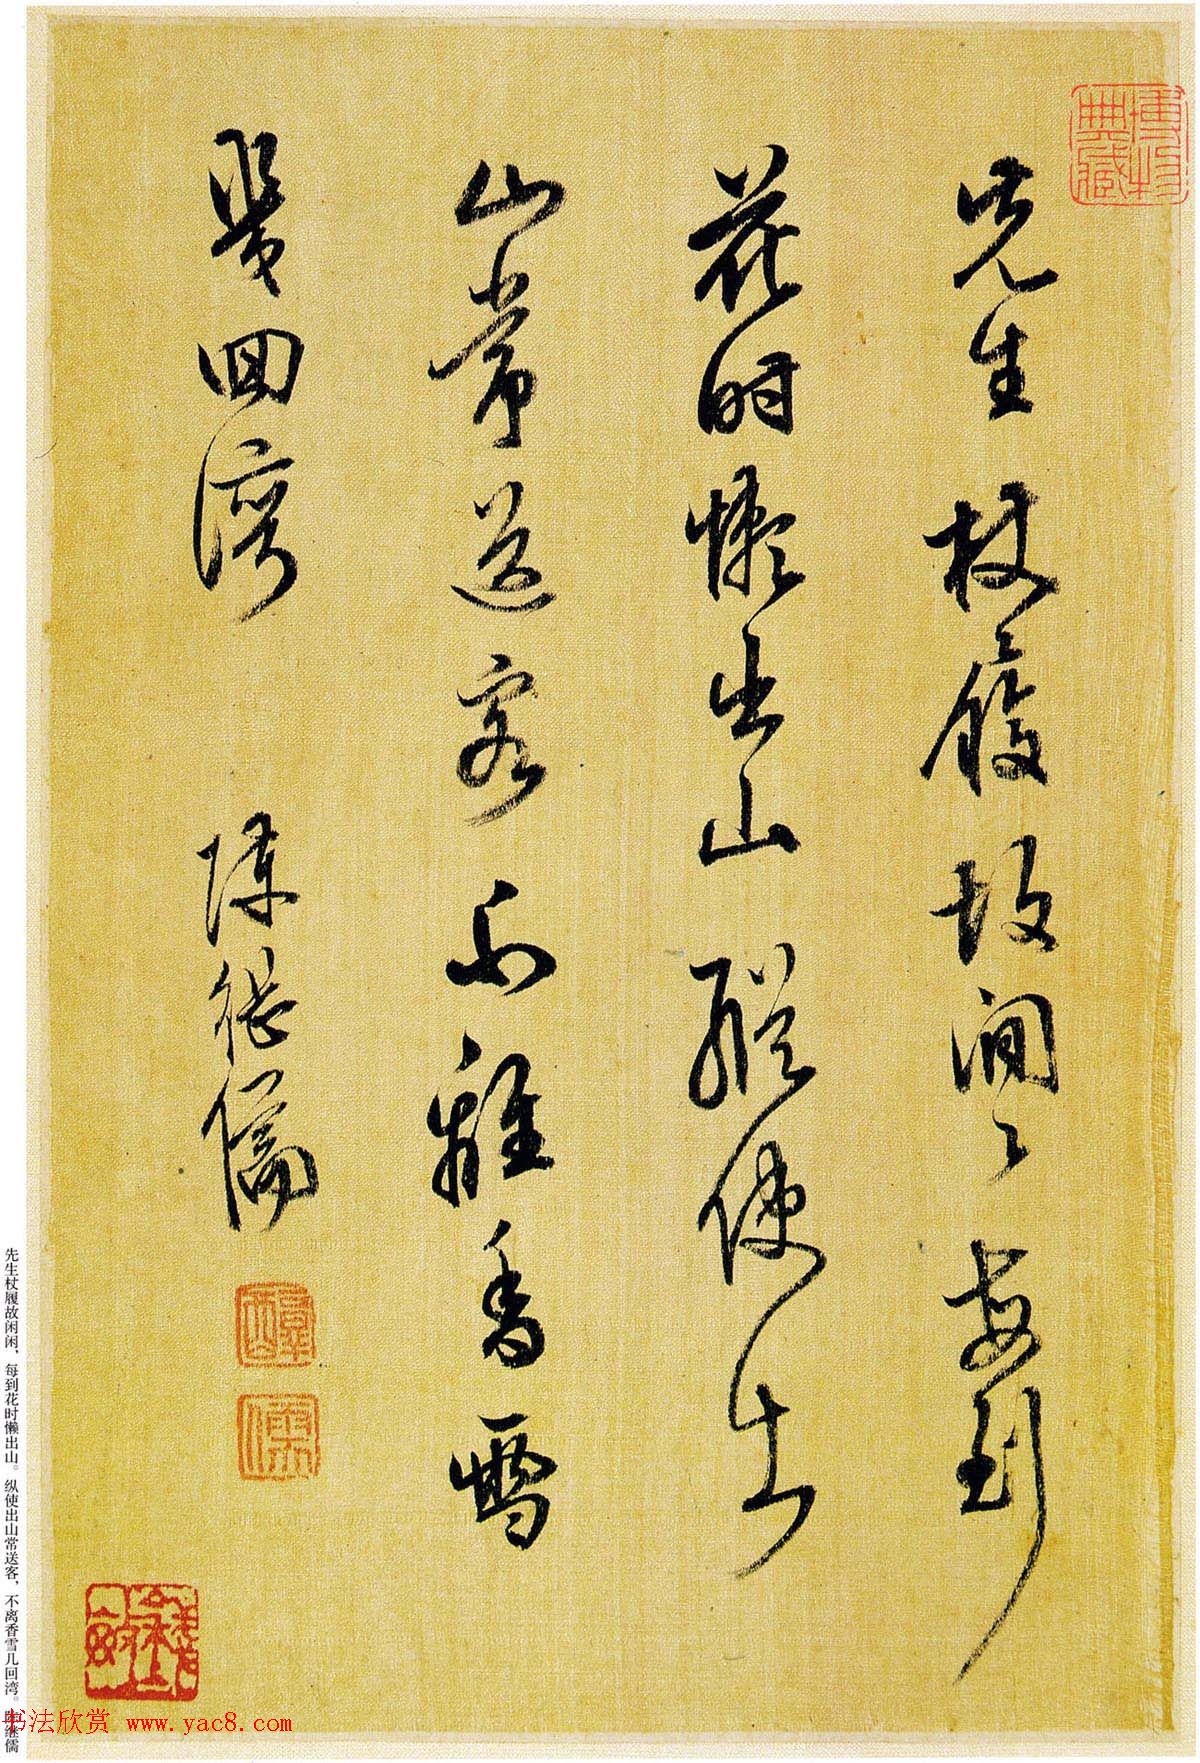 先生杖履故閒〻每到
花時懶出山縱使出
山常送客不離香雪
幾回灣 陳繼儒
先生杖履故闲闲，每到花时懒出山。纵使出山常送客，不离香雪几回湾。陈继儒
书法欣赏 www.yac8.com